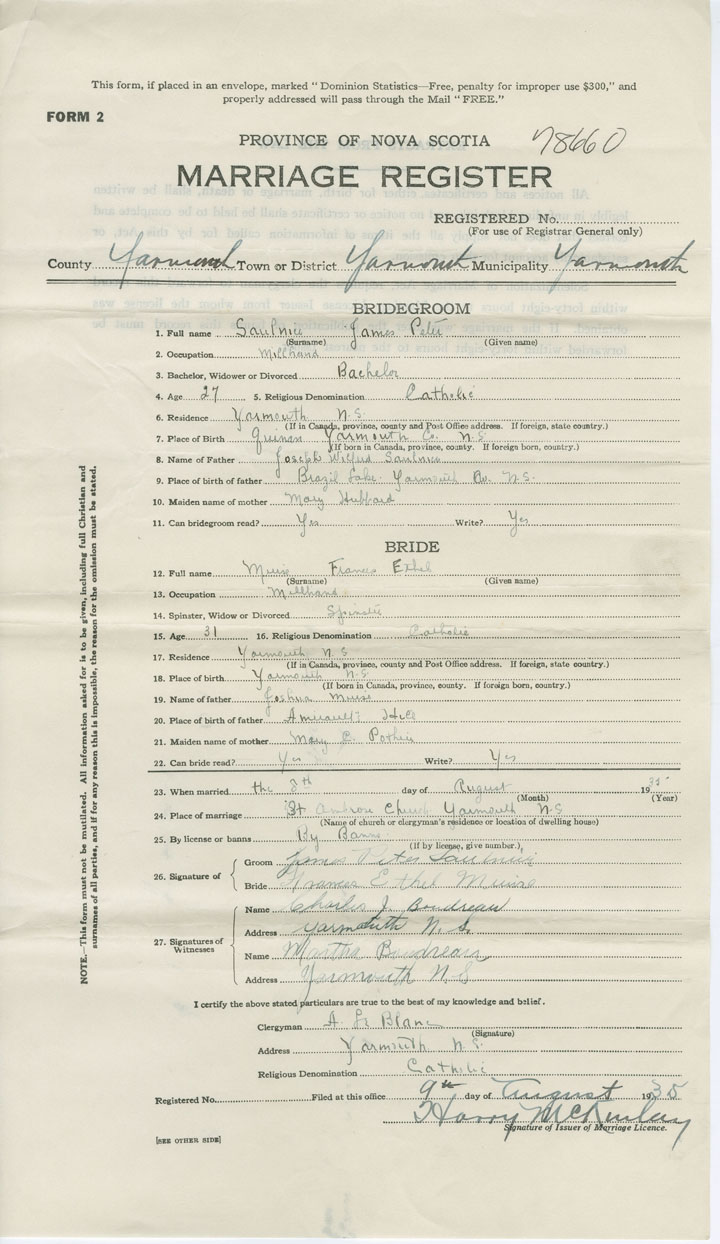 This form, if placed in an envelope, marked "Dominion Statistics—Free, penalty for improper use $300," and
properly addressed will pass through the Mail "FREE."
FORM 2
PROVINCE OF NOVA SCOTIA 78660
MARRIAGE REGISTER
REGISTERED No.
(For use of Registrar General only)
County Yarmouth Town or District Yarmouth Municipality Yarmouth
BRIDEGROOM
1. Full name Saulnier James Peter
(Surname) (Given name)
2. Occupation Millhand
3. Bachelor, Widower or Divorced Bachelor
4. Age 27 5. Religious Denomination Catholic
6. Residence Yarmouth N.S.
(If in Canada, province, county and Post Office address. If foreign, state country.)
7. Place of Birth Quinan Yarmouth Co. N.S
(If born in Canada, province, county. If foreign born, country.)
8. Name of Father Joseph Wilfred Saulnier
9. Place of birth of father Brazil Lake Yarmouth Co. N.S.
10. Maiden name of mother Mary Hubbard
11. Can bridegroom read? Yes Write? Yes
BRIDE
12. Full name Muise Frances Ethel
(Surname) (Given name)
13. Occupation Millhand
14. Spinster, Widow or Divorced Spinster
15. Age 31 16. Religious Denomination Catholic
17. Residence Yarmouth N.S
(If in Canada, province, county and Post Office address. If foreign, state country.)
18. Place of birth Yarmouth N.S
(If born in Canada, province, county. If foreign born, country.)
19. Name of father Joshua Muise
20. Place of birth of father Amirault Hill
21. Maiden name of mother Mary E. Pothier
22. Can bride read? Yes Write? Yes
23. When married the 8th day of August 1935
(Month) (Year)
24. Place of marriage St Ambrose Church Yarmouth N.S
(Name of church or clergyman's residence or location of dwelling house)
25. By license or banns By Banns
(If by license, give number.)
26. Signature of
Groom James Peter Saulnier
Bride Frances Ethel Muise
27. Signatures of Witnesses
Name Charles J. Boudreau
Address Yarmouth N.S.
Name Martha Boudreau
Address Yarmouth N.S
I certify the above stated particulars are true to the best of my knowledge and belief.
Clergyman A. Le Blanc
(Signature)
Address Yarmouth N.S.
Religious Denomination Catholic
Registered No. Filed at this office 9th day of August 1935
Harry McKinlay
Signature of Issuer of Marriage Licence.
[SEE OTHER SIDE]
NOTE.—This form must not be mutilated. All information asked for is to be given, including full Christian and
surnames of all parties, and if for any reason this is impossible, the reason for the omission must be stated.